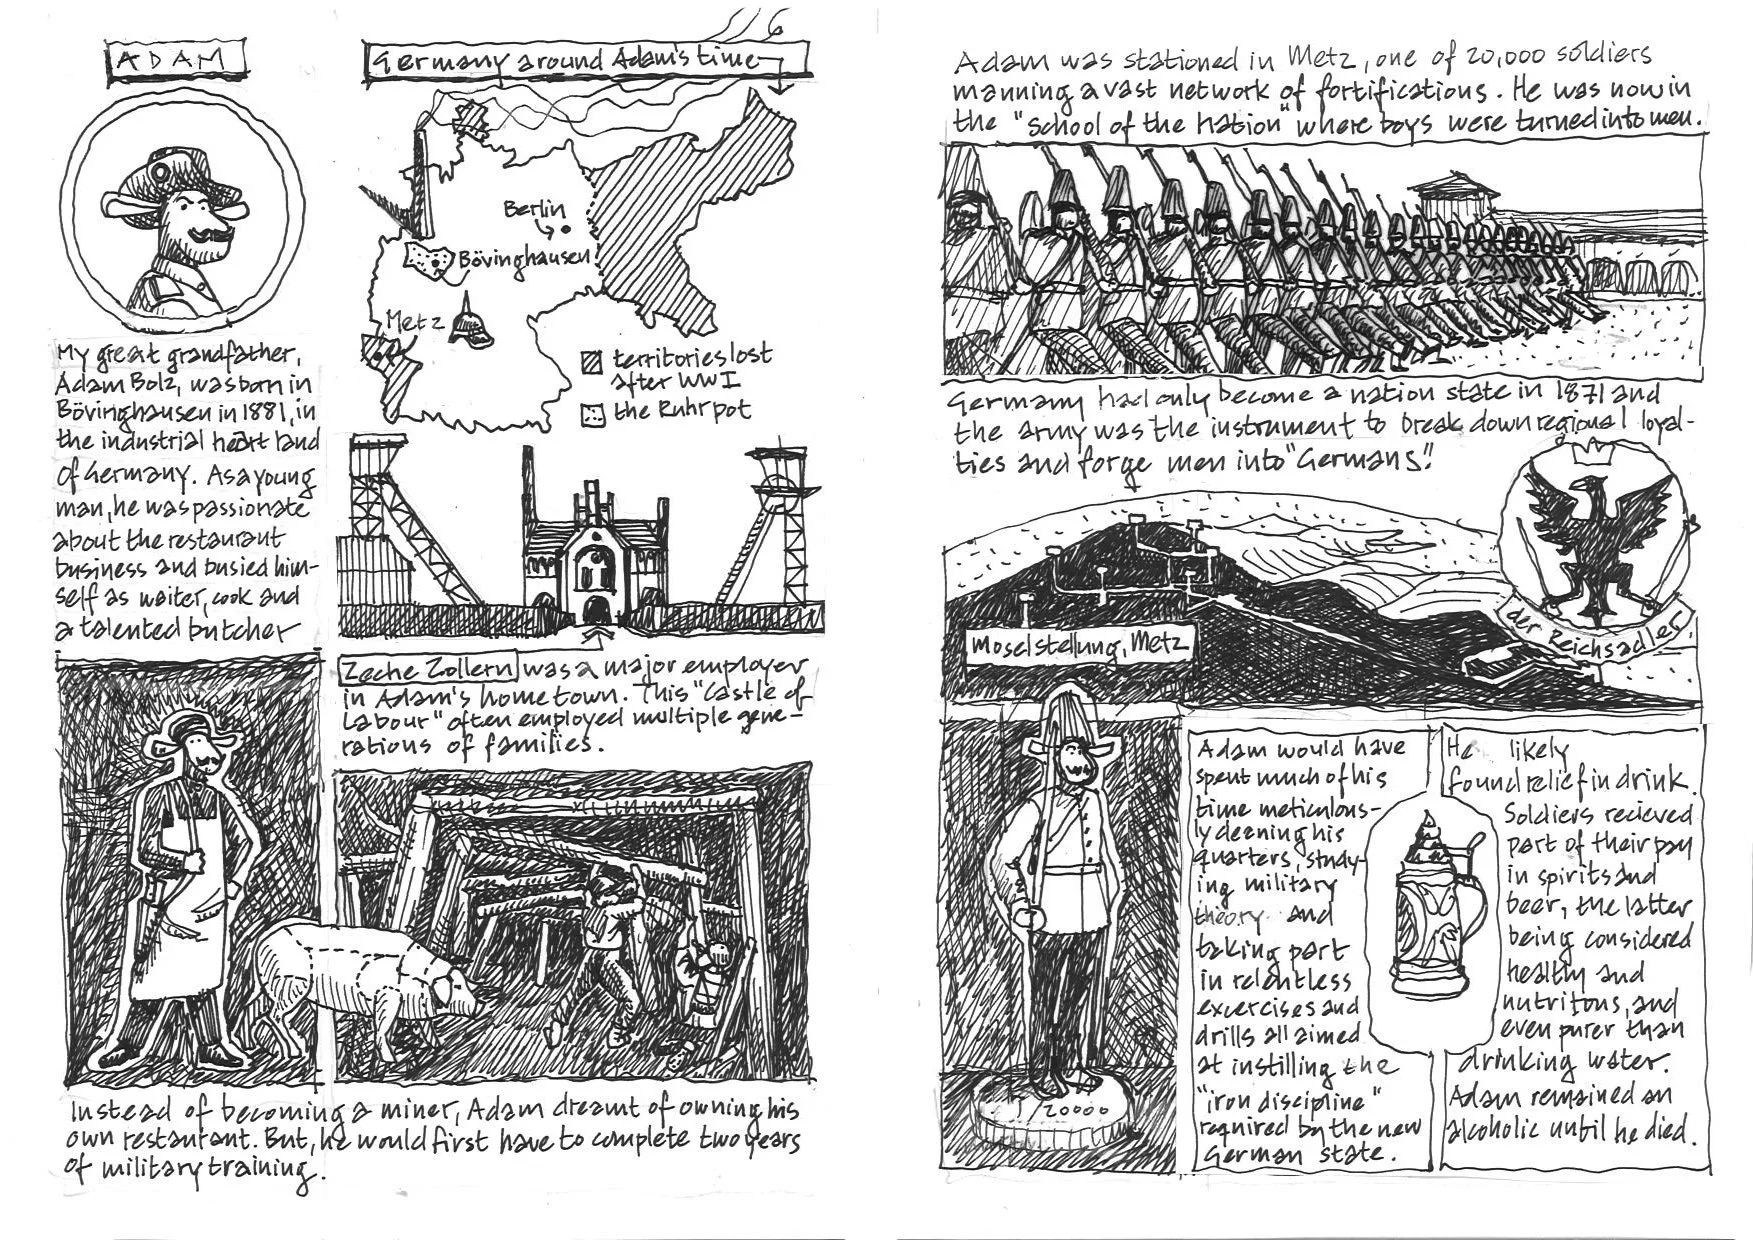 ADAM
My great grandfather,
Adam Bolz, was born in
Bövinghausen in 1881, in
the industrial heart land
of Germany. As a young
man, he was passionate
about the restaurant
business and busied him-
self as waiter, cook and
a talented butcher
Germany around Adam's time
Berlin
Bövinghausen
Metz
territories lost
after WWI
the Ruhrpot
Zeche Zollern was a major employer
in Adam's hometown. This "Castle of
Labour" often employed multiple gene-
rations of families.
Instead of becoming a miner, Adam dreamt of owning his
own restaurant. But, he would first have to complete two years
of military training.
Adam was stationed in Metz, one of 20,000 soldiers
manning a vast network of fortifications. He was now in
the "School of the Nation" where boys were turned into men.
Germany had only become a nation state in 1871 and
the army was the instrument to break down regional loyal-
ties and forge men into "Germans".
der Reichsadler
Moselstellung, Metz
1/20000
Adam would have
spent much of his
time meticulous-
ly cleening his
quarters, study-
ing military
theory and
taking part
in relentless
excercises and
drills all aimed
at instilling the
"iron discipline"
required by the new
German state.
He likely
found relief in drink.
Soldiers recieved
part of their pay
in spirits and
beer, the latter
being considered
healthy and
nutritous, and
even purer than
drinking water.
Adam remained an
alcoholic until he died.